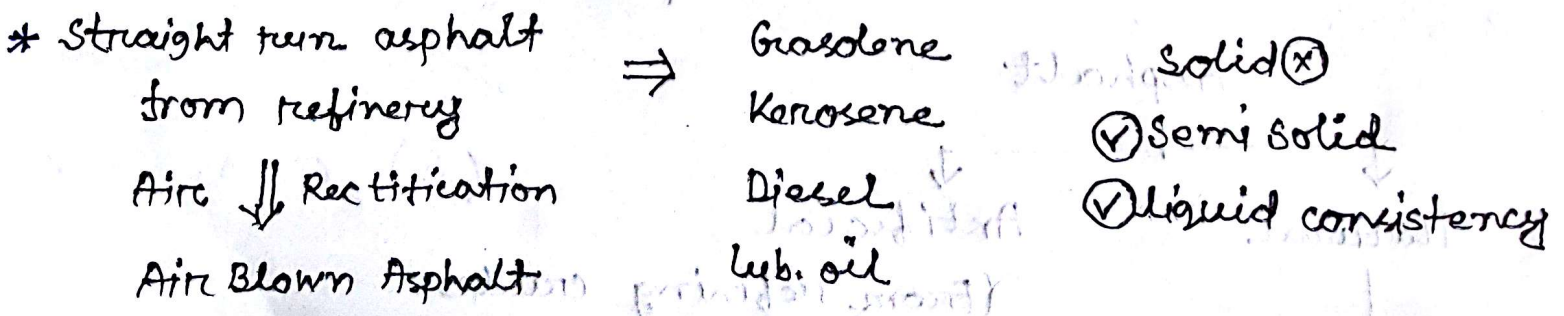 * Straight run asphalt
from refinery
Air ⇓ Rectification
Air Blown Asphalt
⇒
Gasolene
Kerosene
Diesel
lub. oil
Solid ⓧ
✓ Semi Solid
✓ liquid consistency